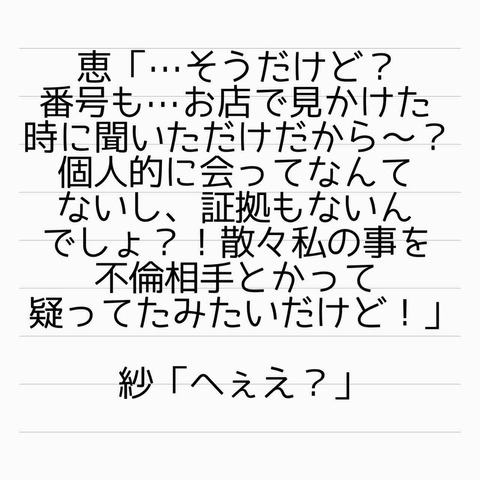 恵「…そうだけど？
番号も…お店で見かけた
時に聞いただけだから〜？
個人的に会ってなんて
ないし、証拠もないん
でしょ？！散々私の事を
不倫相手とかって
疑ってたみたいだけど！」
紗「へぇえ？」